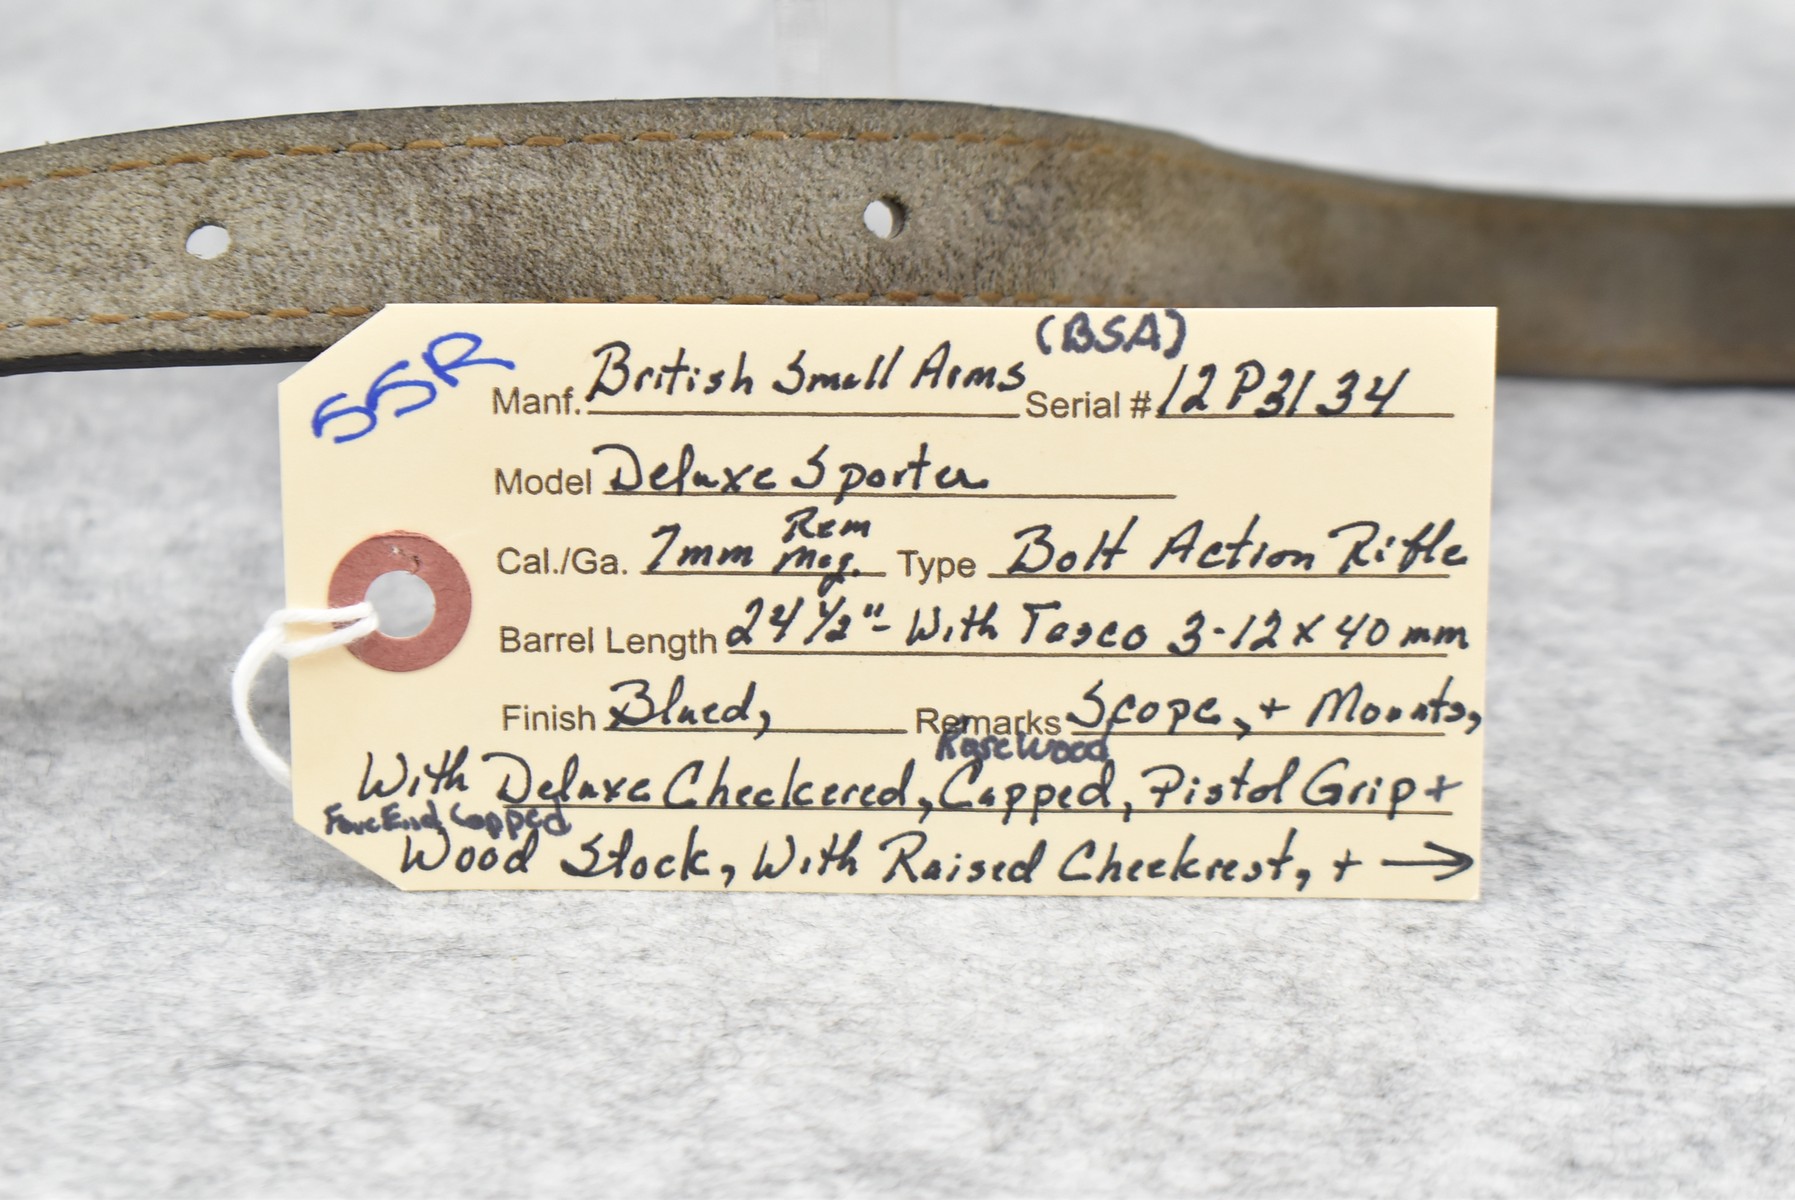 SSR
(BSA)
Manf. British Small Arms Serial # 12P3134
Model Deluxe Sporter
Cal./Ga. 7mm Rem Mag. Type Bolt Action Rifle
Barrel Length 24 1/2" - With Tasco 3-12x40mm
Finish Blued, Remarks Scope, + Mounts,
Rosewood
With Deluxe Checkered, Capped, Pistol Grip +
ForeEnd Capped
Wood Stock, With Raised Cheekrest, + →